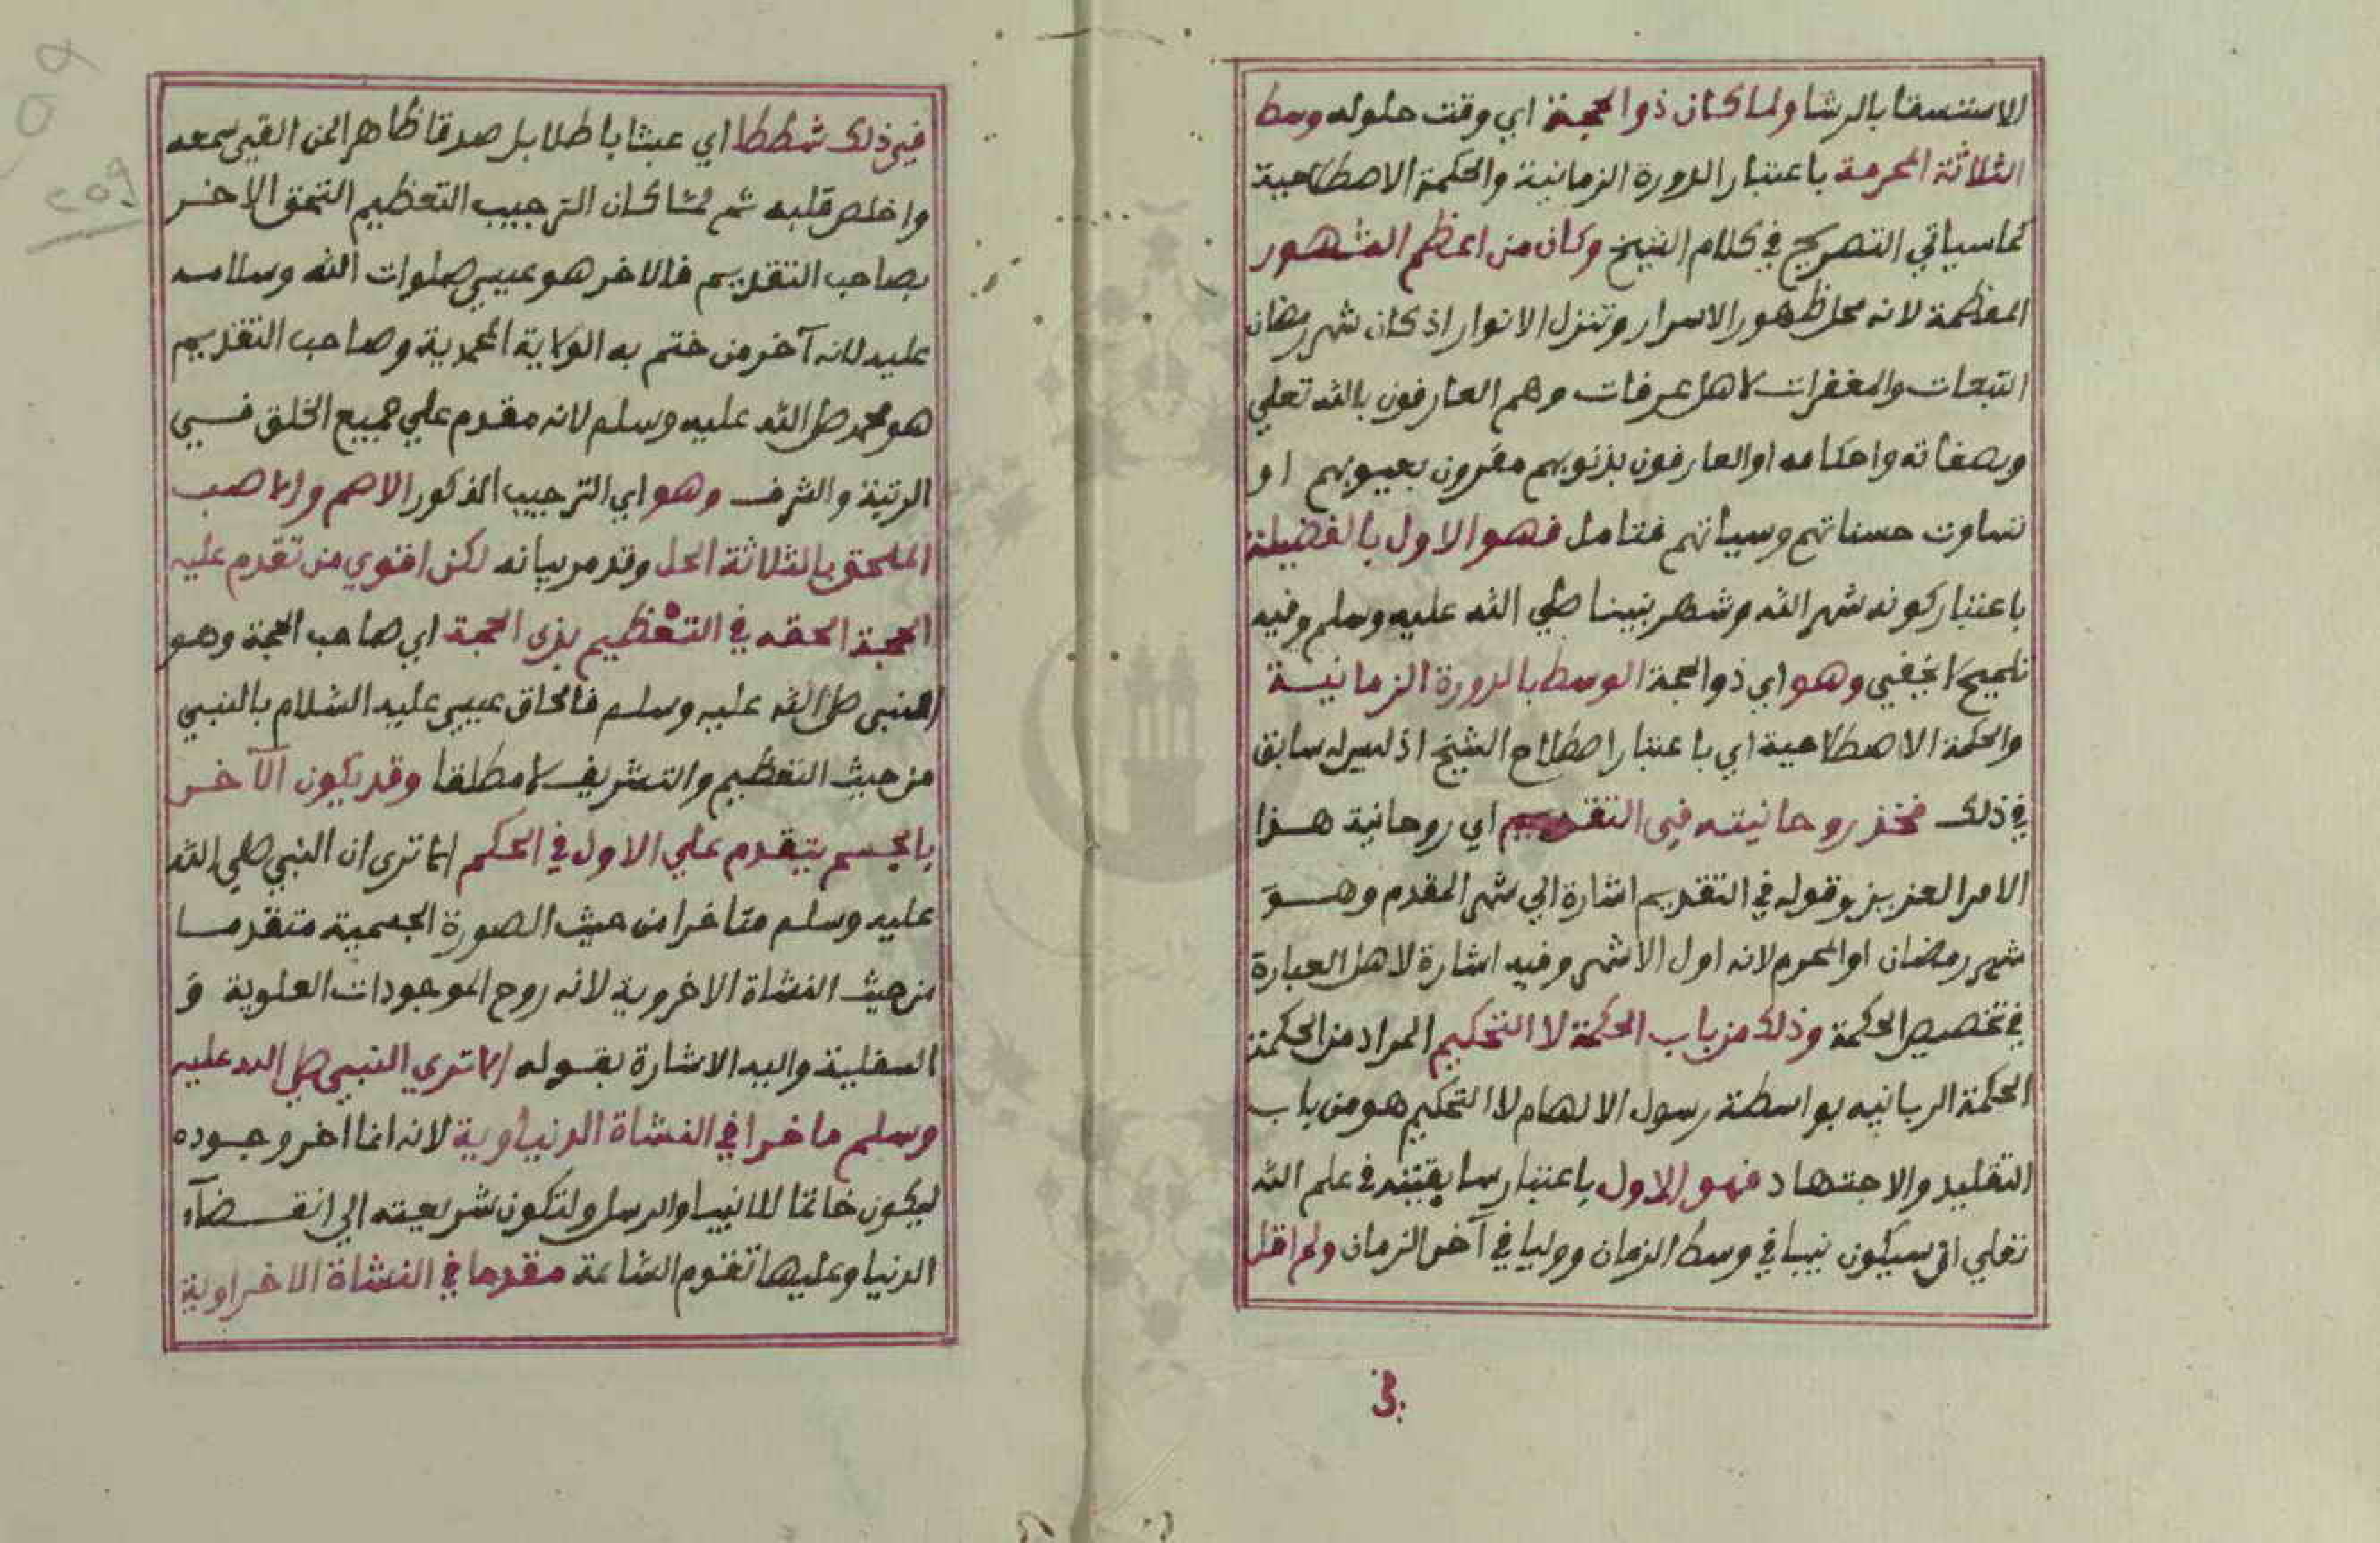 الاستسقا بالرشا ولما كان ذو الحجة اي وقت حلوله وسط
الثلاثة المحرمة باعتبار الدورة الزمانية والحكمة الاصطلاحية
كما سياتي التصريح في كلام الشيخ وكان من اعظم الشهور
المعظمة لانه محل ظهور الاسرار وتنزل الانوار اذ كان شهر رمضان
التبعات والمغفرات لاهل عرفات وهم العارفون بالله تعلي
وبصفاته واحكامه او العارفون بذنوبهم مقرون بعيوبهم او
تساوت حسناتهم وسياتهم فتامل فهو الاول بالفضيلة
باعتبار كونه شهر الله وشطر نبينا صلي الله عليه وسلم وفيه
تلميح لخفي وهو اي ذو الحجة الوسط بالدورة الزمانية
والحكمة الاصطلاحية اي باعتبار اصطلاح الشيخ اذ ليس له سابق
في ذلك فخذ روحانيته في التقديم اي روحانية هذا
الامر العزيز وقوله في التقديم اشارة الي شهر المقدم وهو
شهر رمضان او المحرم لانه اول الاشهر وفيه اشارة لاهل العبارة
في تخصيص الحكمة وذلك من باب الحكمة لا التحكيم المراد من الحكمة
الحكمة الربانيه بواسطة رسول الالهام لا التحكيم هو من باب
التقليد والاجتهاد فهو الاول باعتبار سابقيته في علم الله
تعلي انه سيكون نبيا في وسط الزمان ووليا في آخر الزمان ولم اقل
في
في ذلك شططا اي عبثا باطلا بل صدقا ظاهرا لمن القي سمعه
واخلص قلبه ثم لما كان الترجيب التعظيم التحق الاخر
بصاحب التقديم فالاخر هو عيسي صلوات الله وسلامه
عليه لانه آخر من ختم به الولاية المحمدية وصاحب التقديم
هو محمد صلي الله عليه وسلم لانه مقدم علي جميع الخلق في
الرتبة والشرف وهو اي الترجيب المذكور الاصم والاصب
الملحق بالثلاثة الحل وقد مر بيانه لكن اقتوي من تقدم عليه
الحجة الحقه في التعظيم بذي الحجة اي صاحب الحجة وهو
النبي صلي الله عليه وسلم فالحاق عيسي عليه السلام بالنبي
من حيث التعظيم والتشريف لا مطلقا وقد يكون الآخر
بالجسم يتقدم علي الاول في الحكم الا ترى ان النبي صلي الله
عليه وسلم متاخرا من حيث الصورة الجسمية متقدما
من حيث النشاة الاخروية لانه روح الموجودات العلوية و
السفلية واليه الاشارة بقوله الا تري النبي صلي الله عليه
وسلم ماخرا في النشاة الدنياوية لانه انما اخر وجوده
ليكون خاتما للانبيا والرسل ولتكون شريعته الي انقضآء
الدنيا وعليها تقوم الساعة مقدما في النشاة الاخراوية
٢٥٩